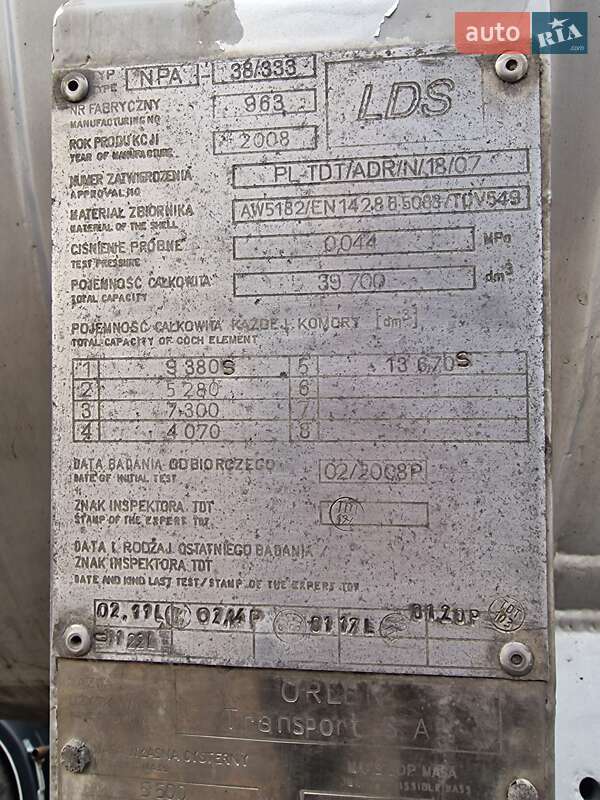 auto RIA .com
TYP
TYPE NPA - 38/333
NR FABRYCZNY
MANUFACTURING NO 963
LDS
ROK PRODUKCJI
YEAR OF MANUFACTURE 2008
NUMER ZATWIERDZENIA
APPROVAL NO PL-TDT/ADR/N/18/07
MATERIAŁ ZBIORNIKA
MATERIAL OF THE SHELL AW5182/EN14286 5083/TÜV549
CIŚNIENIE PRÓBNE
TEST PRESSURE 0,044 MPa
POJEMNOŚĆ CAŁKOWITA
TOTAL CAPACITY 39 700 dm³
POJEMNOŚĆ CAŁKOWITA KAŻDEJ KOMORY [dm³]
TOTAL CAPACITY OF COCH ELEMENT
1 9 380 S 5 13 670 S
2 5 280 6
3 7 300 7
4 4 070 8
DATA BADANIA ODBIORCZEGO
DATE OF INITIAL TEST 02/2008P
ZNAK INSPEKTORA TDT
STAMP OF THE EXPERT TDT
DATA I RODZAJ OSTATNIEGO BADANIA /
ZNAK INSPEKTORA TDT
DATE AND KIND LAST TEST/STAMP OF THE EXPERT TDT
02.11L 02/14P 01 17L 01.20P
ORLEN
Transport S.A.